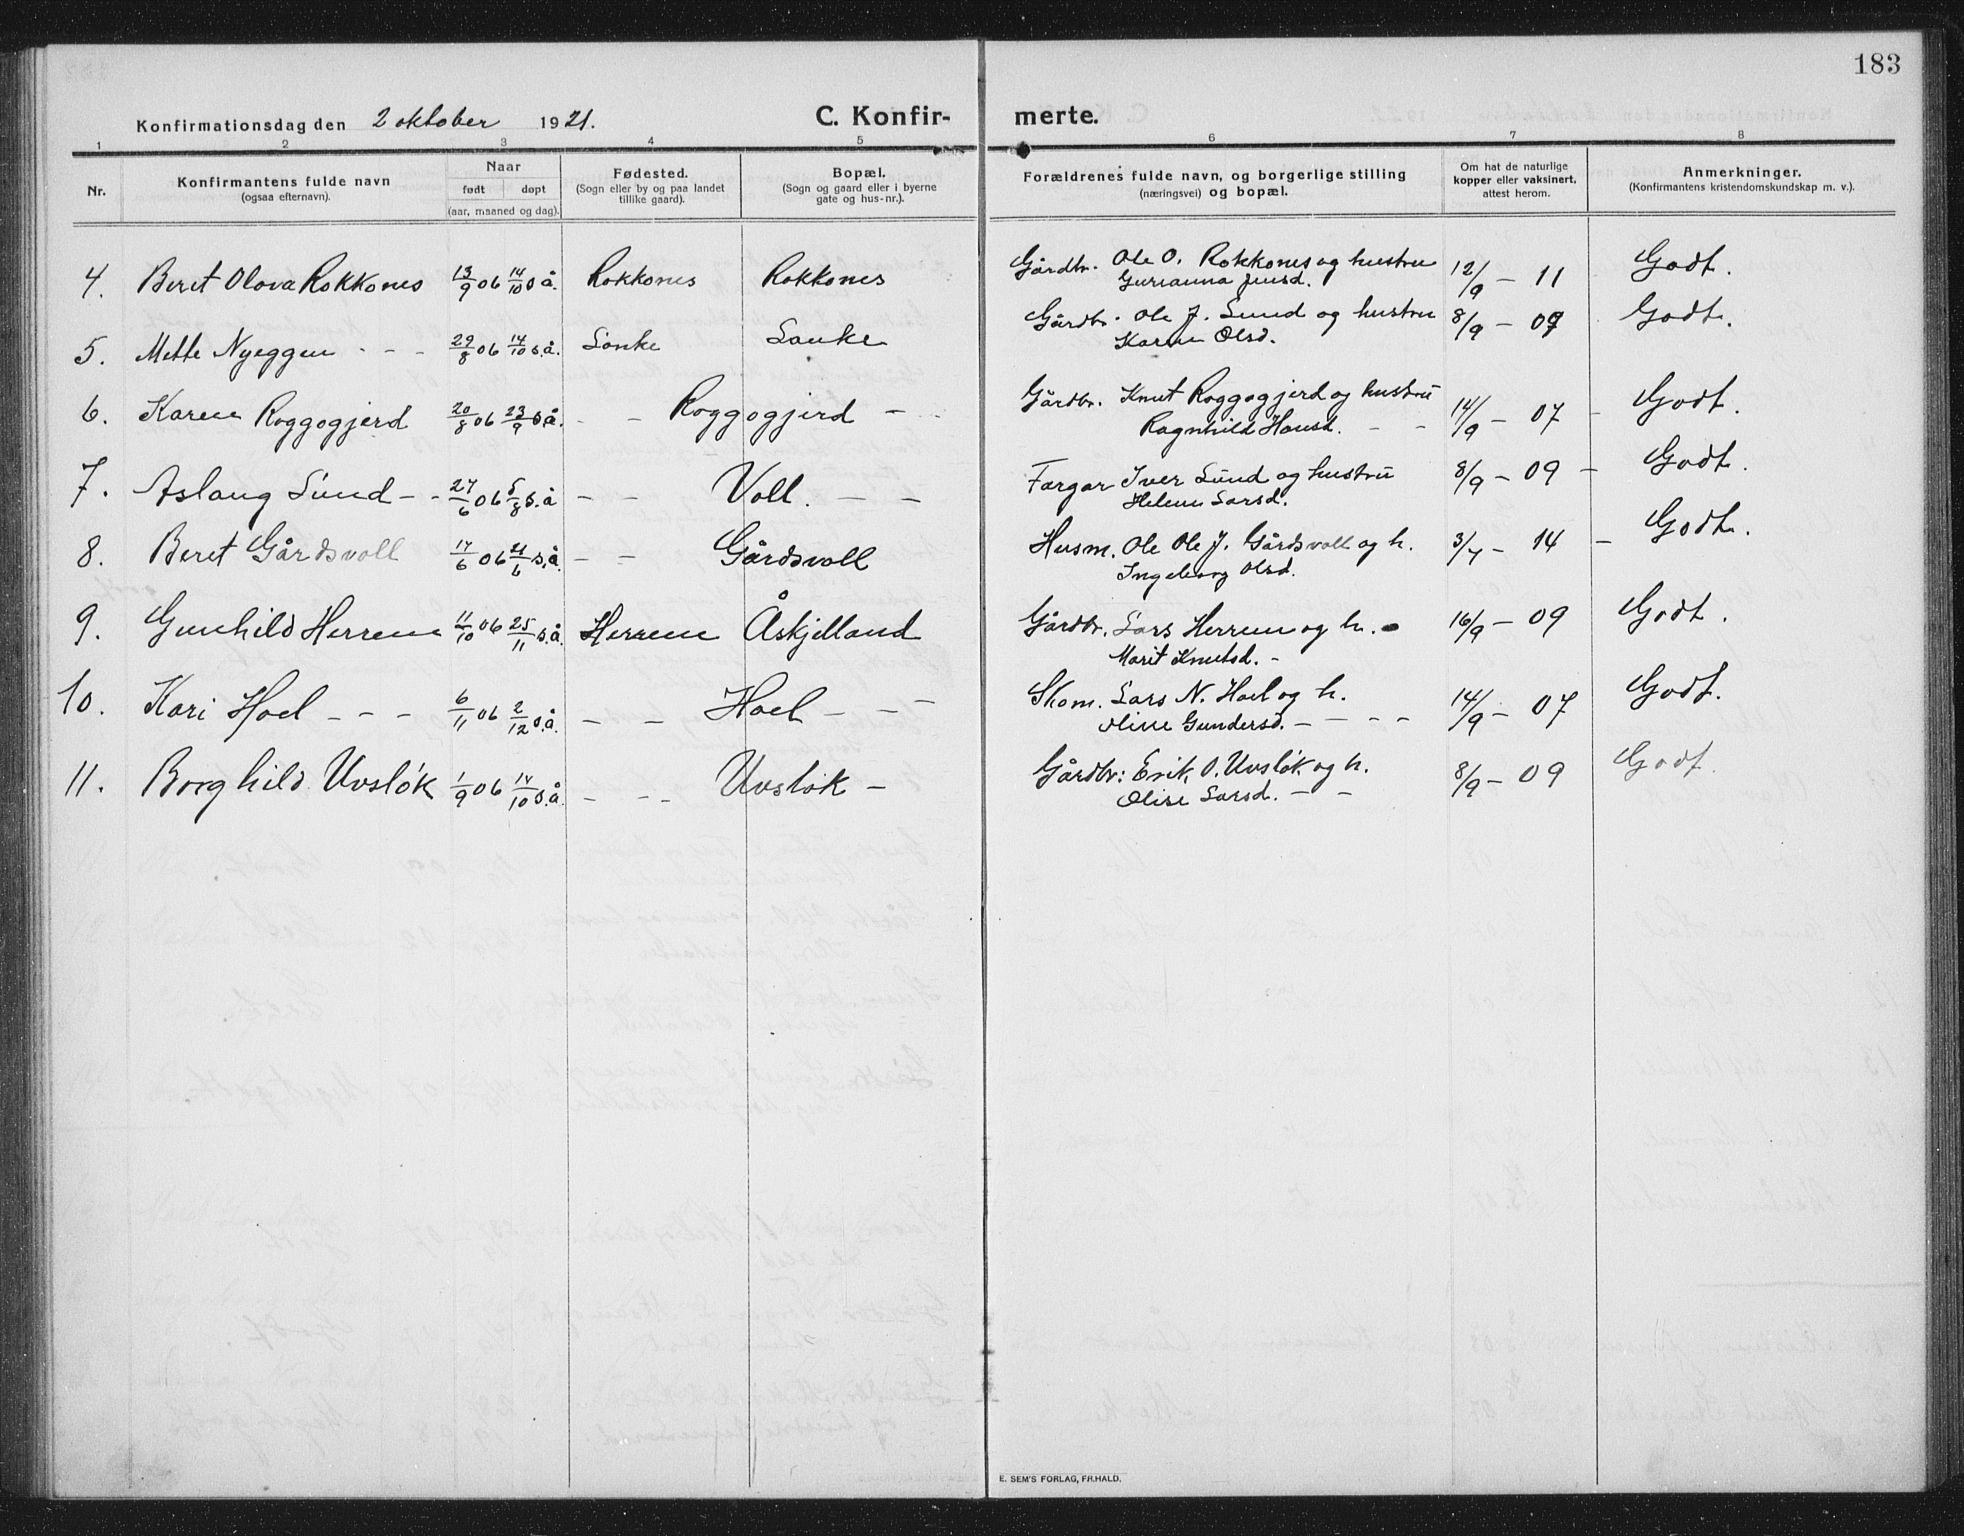 183
Konfirmationsdag den 2 oktober 1921. C. Konfirmerte.
1 2 3 4 5 6 7 8
Nr. Konfirmantens fulde navn (ogsaa efternavn). Naar født døpt (aar, maaned og dag). Fødested. (Sogn eller by og paa landet tillike gaard). Bopæl. (Sogn og gaard eller i byerne gate og hus-nr.). Forældrenes fulde navn, og borgerlige stilling (næringsvei) og bopæl. Om hat de naturlige kopper eller vaksinert, attest herom. Anmerkninger. (Konfirmantens kristendomskundskap m. v.).
4. Beret Olova Rokkones 13/9 06 14/10 s.å. Rokkones Rokkones Gårdbr. Ole O. Rokkones og hustru 12/9 – 11 Godt.
Gurianna Jensd.
5. Mette Nyeggen - - - 29/8 06 14/10 s.å. Lönke Lønke Gårdbr. Ole J. Lund og hustru 8/9 – 09 Godt.
Karen Olsd.
6. Karen Roggogjerd 20/8 06 23/9 s.å. - - Roggogjerd - Gårdbr. Knut Roggogjerd og hustru 14/9 – 07 - Godt.
Ragnhild Hansd. - -
7. Aslaug Lund - - 27/6 06 5/8 s.å - - Voll. - - Fargar Iver Lund og hustru 8/9 – 09 - Godt.
Helene Larsd.
8. Beret Gårdsvoll 17/6 06 21/6 s.å. - - Gårdsvoll Husm. Ole Ole J. Gårdsvoll og h. 3/7 – 14 - Godt.
Ingeborg Olsd.
9. Gunhild Herrem 11/10 06 25/11 s.å. Herrem Åskjelland Gårdbr. Lars Herrem og h. 16/9 – 09 Godt.
Marit Knutsd. -
10. Kari Hoel - - - 6/11 06 2/12 s.å. - - Hoel - - - Skom. Lars N. Hoel og h. 14/9 – 07 Godt.
Oline Gundersd. - - - -
11. Borghild Uvsløk 1/9 06 14/10 s.å. - - - Uvsløk - Gårdbr: Erik O. Uvsløk og h. 8/9 – 09 Godt.
Olise Larsd. - -
E. SEM'S FORLAG, FR.HALD.